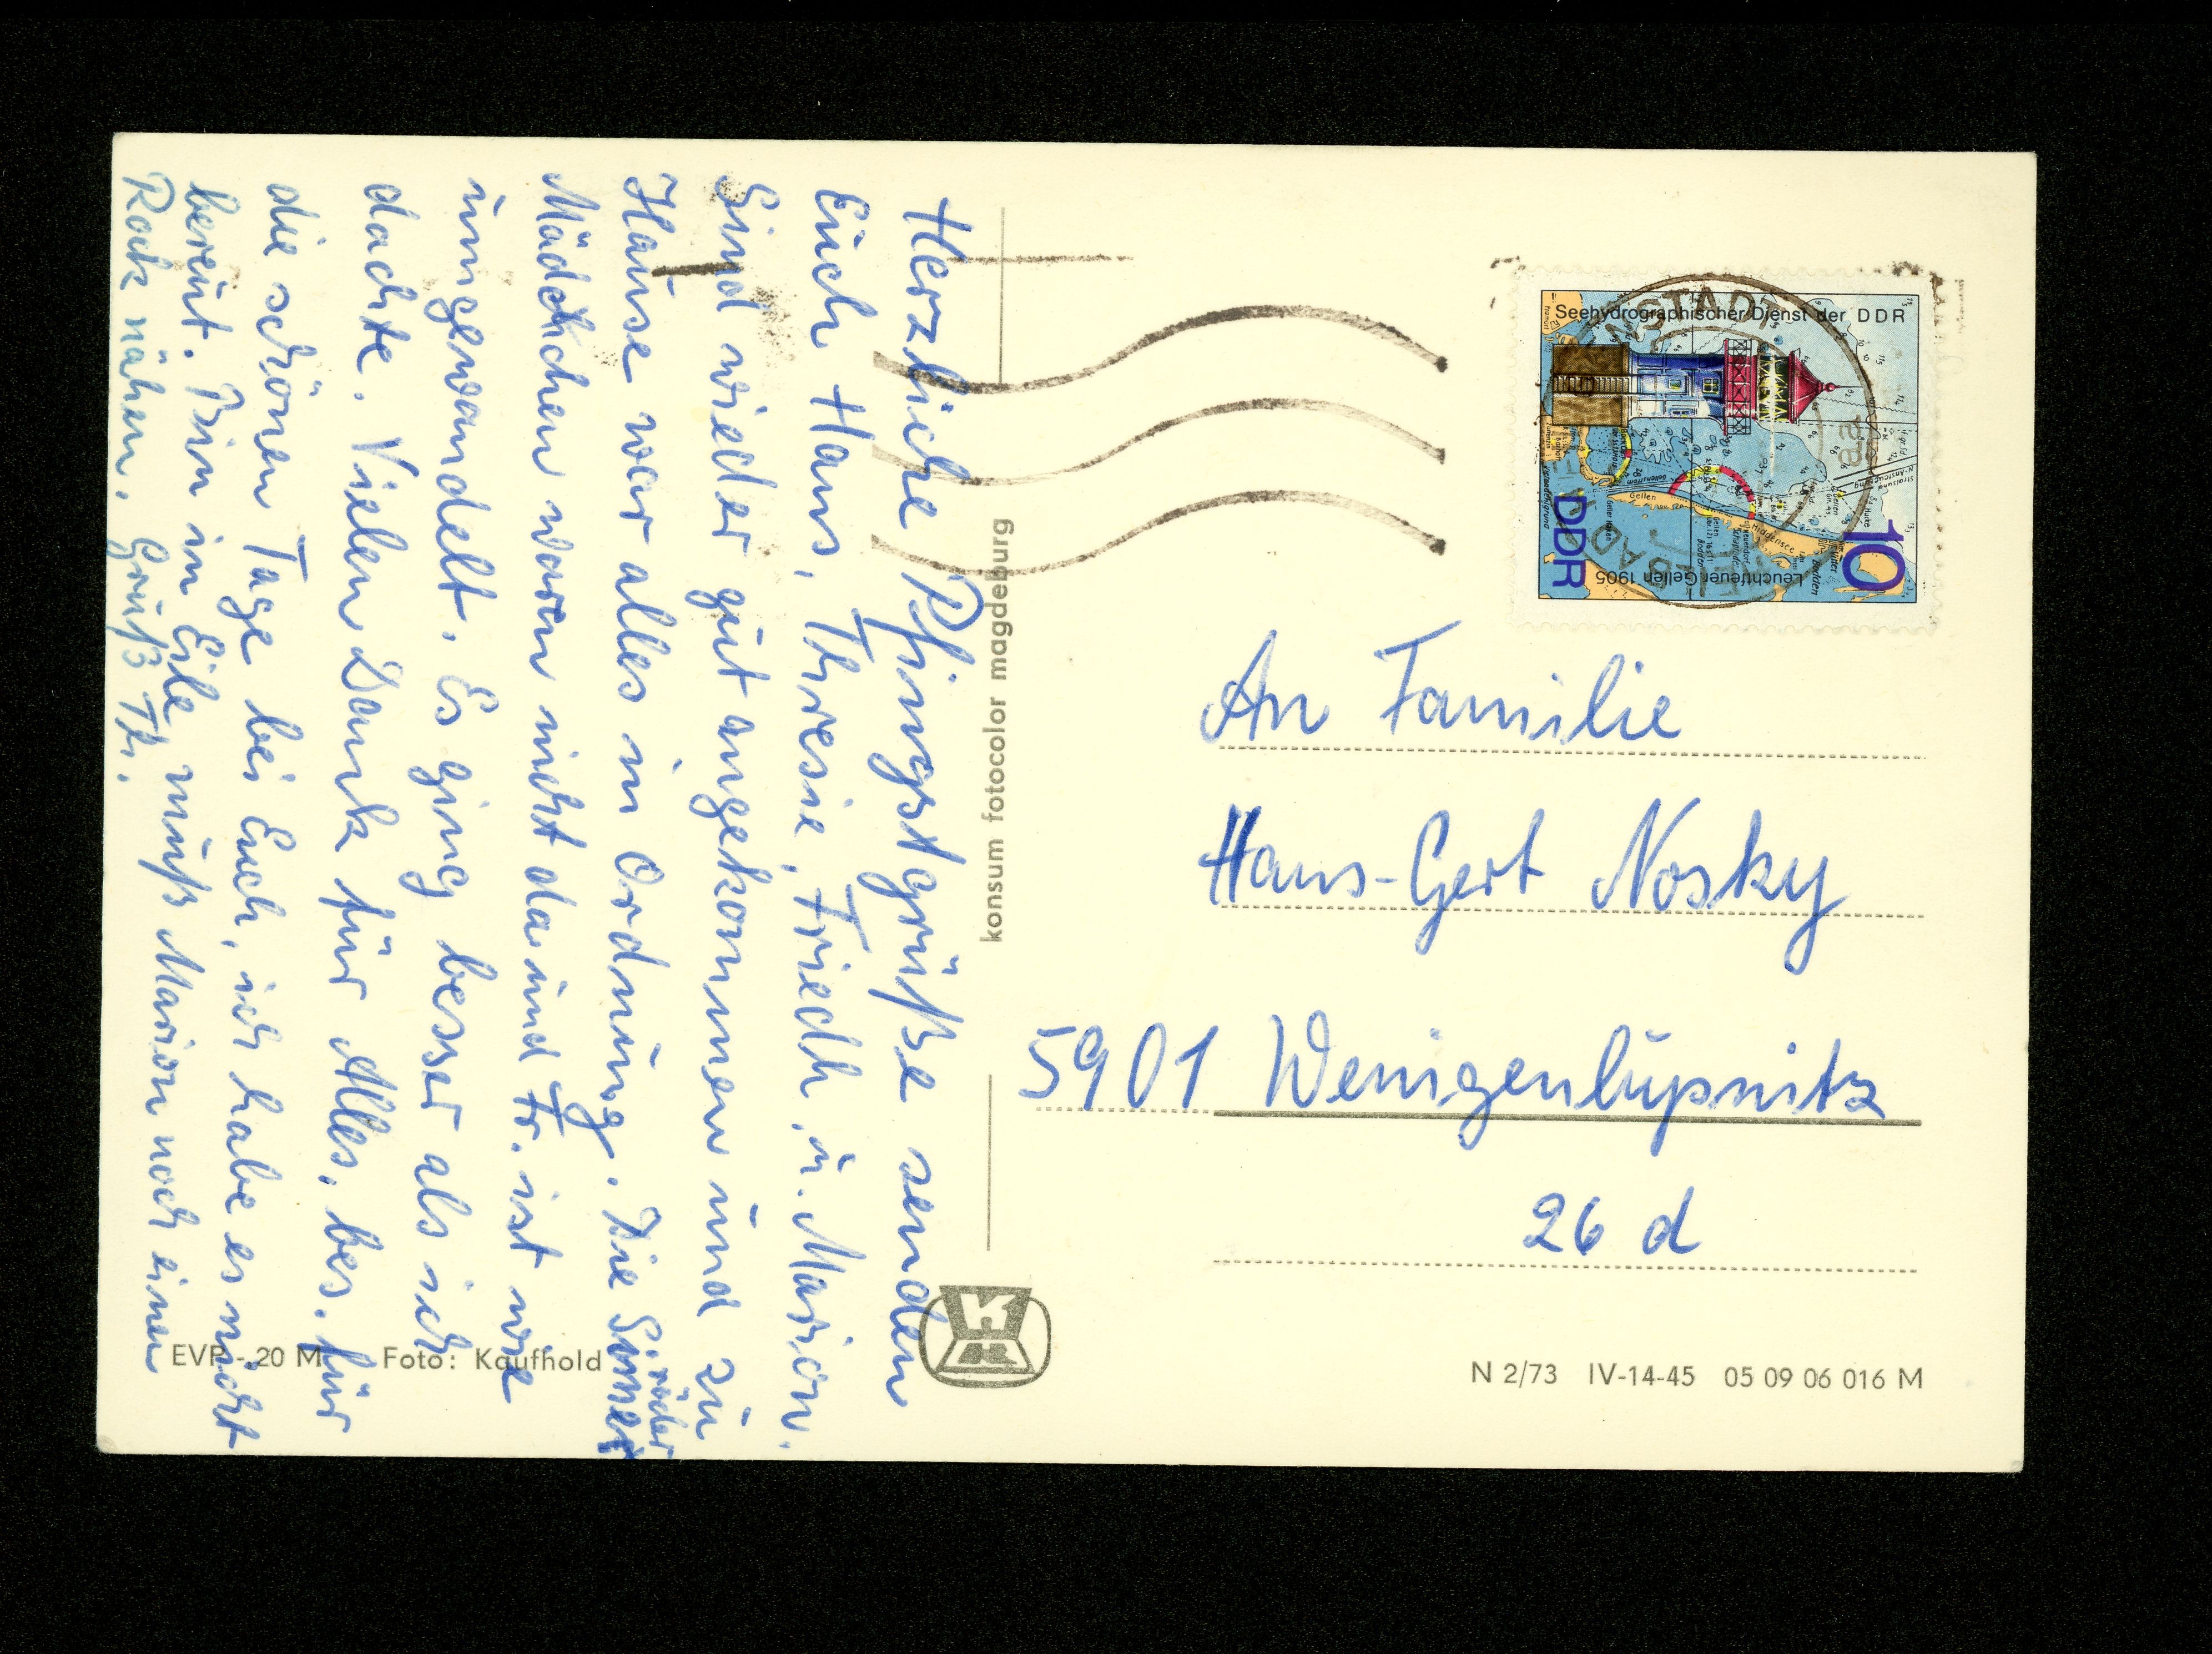 Herzliche Pfingstgrüße senden
Euch Hans, Thresie, Friedh. u. Marion.
Sind wieder gut angekommen und zu
Hause war alles in Ordnung. Die
Mädchen waren nicht da und Fr. ist wie
umgewandelt. Es ging besser als ich
dachte. Vielen Dank für Alles, bes. für
die schönen Tage bei Euch, ich habe es nicht
bereut. Bin in Eile muß Marion noch einen
Rock nähen. Gruß Th.
konsum fotocolor magdeburg
Seehydrographischer Dienst der DDR
Leuchtfeuer Gellen 1905
DDR
10
An Familie
Hans-Gert Nosky
5901 Wenigenlupnitz
26 d
EVP -.20 M Foto: Kaufhold
N 2/73 IV-14-45 05 09 06 016 M